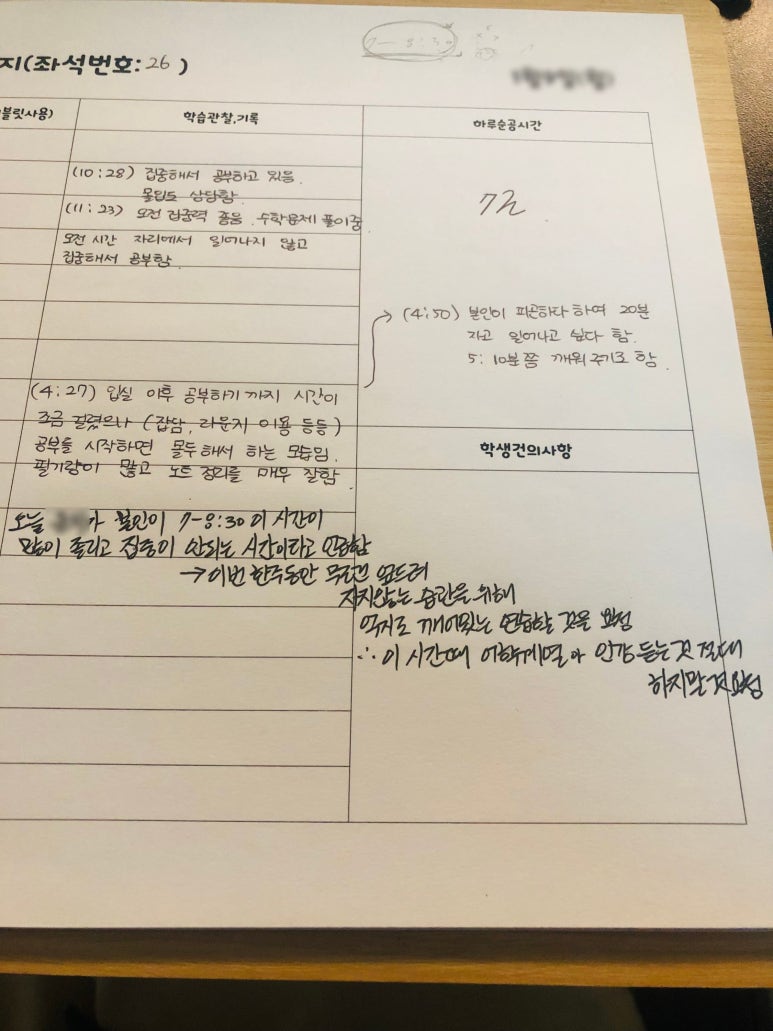 7-8:30
지(좌석번호: 26 )
블릿사용)
학습관찰,기록
하루순공시간
(10:28) 집중해서 공부하고 있음.
몰입도 상당함
(11:23) 오전 집중력 좋음. 수학문제 풀이중
오전 시간 자리에서 일어나지 않고
집중해서 공부함.
7h
(4:50) 본인이 피곤하다 하여 20분
자고 일어나고 싶다 함.
5:10분쯤 깨워주기로 함.
(4:27) 입실 이후 공부하기 까지 시간이
조금 걸렸으나 (잡담, 라운지 이용 등등)
공부를 시작하면 몰두해서 하는 모습임.
필기량이 많고 노트 정리를 매우 잘함.
학생건의사항
오늘 가 본인이 7-8:30 이 시간이
많이 졸리고 집중이 안되는 시간이다고 언급함
→ 이번 한주동안 무조건 엎드려
자지않는 습관을 위해
억지로 깨어있는 연습할 것을 요청
∴ 이 시간때 어학계열 인강 듣는 것 절대
하지말 것 요청